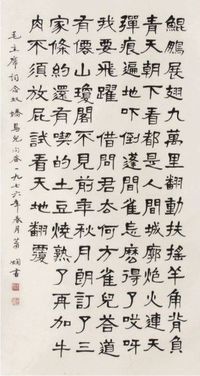 鯤鵬展翅九萬里翻動扶搖羊角背負
青天朝下看都是人間城廓炮火連天
彈痕遍地吓倒蓬間雀怎麽得了哎呀
我要飛躍借問君去何方雀兒答道
有僊山瓊閣不見前年秋月朗訂了三
家條約還有喫的土豆燒熟了再加牛
肉不須放屁試看天地翻覆
毛主席詞念奴嬌鳥兒問答一九七六年春月蕭嫻書